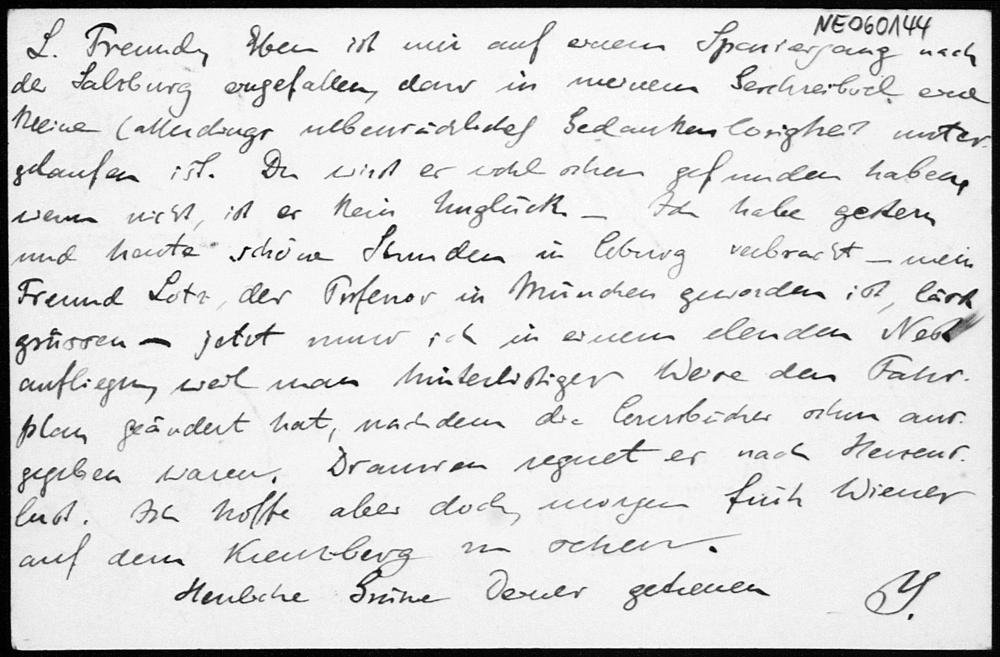 NE060144
L. Freund, Eben ist mir auf einem Spaziergang nach
der Salzburg eingefallen, dass in meinem eine
kleine (allerdings nebensächliche) Gedankenlosigkeit unter-
gelaufen ist. Du wirst es wohl schon gefunden haben,
wenn nicht, ist es kein Unglück – Ich habe gestern
und heute schöne Stunden in Coburg verbracht – mein
Freund Lotz, der Professor in München geworden ist, lässt
grüssen – jetzt muss ich in einem elenden Nest
aufliegen, weil man hinterlistiger Weise den Fahr-
plan geändert hat, nachdem die Coursbücher schon aus-
gegeben waren. Draussen regnet es nach Herzens-
lust. Ich hoffe aber doch, morgen früh Wiener
auf dem Kreuzberg zu sehen.
Herzliche Grüsse Deines getreuen Y.